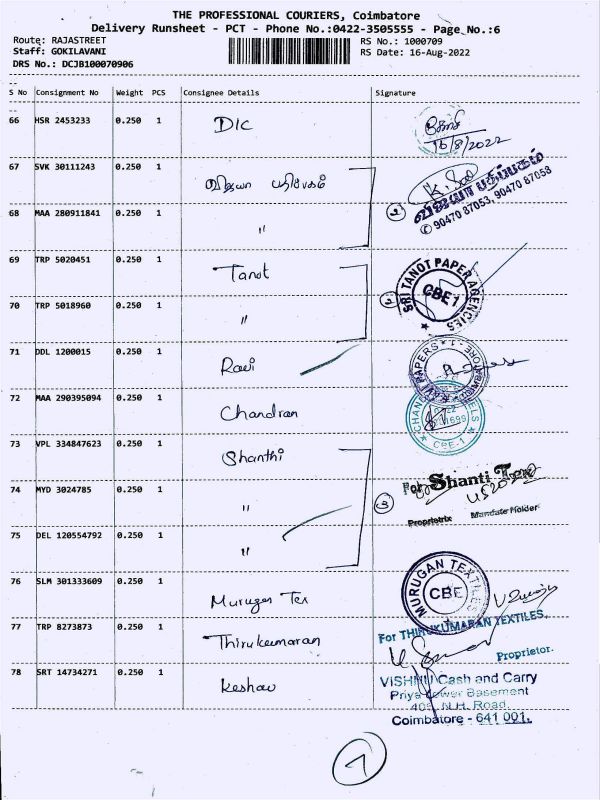 THE PROFESSIONAL COURIERS, Coimbatore
Delivery Runsheet - PCT - Phone No.:0422-3505555 - Page No.:6
Route: RAJASTREET
RS No.: 1000709
Staff: GOKILAVANI
RS Date: 16-Aug-2022
DRS No.: DCJB100070906
S No Consignment No Weight PCS Consignee Details Signature
66 HSR 2453233 0.250 1 DIC
16/8/2022
67 SVK 30111243 0.250 1 விஜயா பதிப்பகம்
K.
விஜயா பதிப்பகம்
✆ 90470 87053, 90470 87058
68 MAA 280911841 0.250 1 "
2
69 TRP 5020451 0.250 1 Tanot
SRI TANOT PAPER AGENCIES
CBE 1
70 TRP 5018960 0.250 1 "
2
71 DDL 1200015 0.250 1 Ravi
RAVI PAPERS
72 MAA 290395094 0.250 1 Chandran
CBE-1
73 VPL 334847623 0.250 1 Shanthi
For Shanti Tex
74 MYD 3024785 0.250 1 "
3
Proprietrix Mandate Holder
75 DEL 120554792 0.250 1 "
76 SLM 301333609 0.250 1 Murugan Tex
MURUGAN TEXTILES
CBE
77 TRP 8273873 0.250 1 Thirukumaran
For THIRUKUMARAN TEXTILES,
Proprietor.
78 SRT 14734271 0.250 1 Keshav
VISHNU Cash and Carry
Priya Tower Basement
N.H. Road,
Coimbatore - 641 001.
7